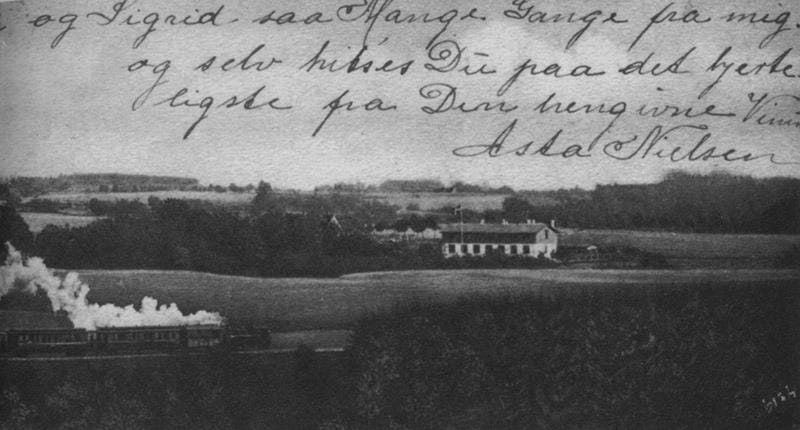 og Sigrid saa Mange Gange fra mig.
og selv hilses Du paa det hjerte
ligste fra Din hengivne
Asta Nielsen